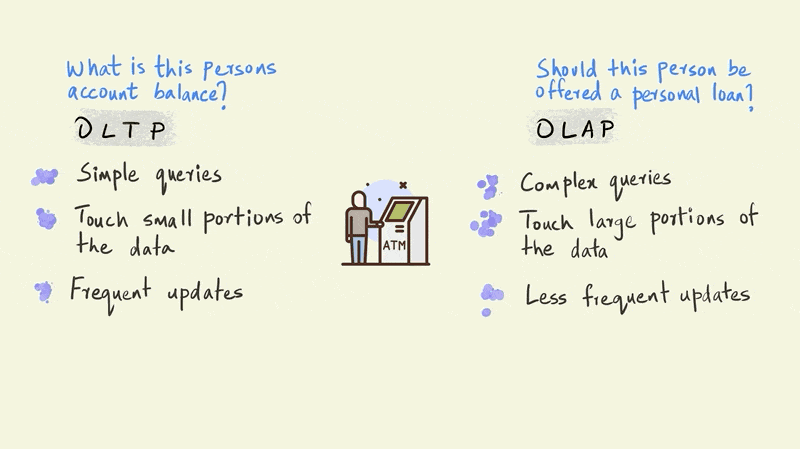 What is this persons
account balance?
OLTP
Simple queries
Touch small portions of
the data
Frequent updates
ATM
Should this person be
offered a personal loan?
OLAP
Complex queries
Touch large portions of
the data
Less frequent updates